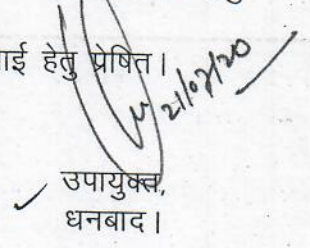 ाई हेतु प्रेषित।
21/07/20
उपायुक्त,
धनबाद।